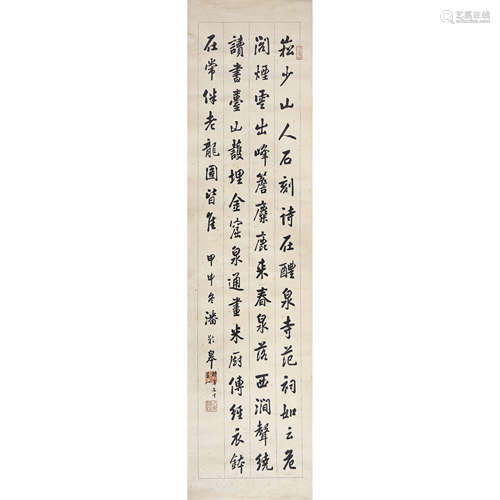 崧少山人石刻詩在醴泉寺范祠如云危
閣煙雲出峰簷麋鹿來春泉落西澗聲繞
讀書臺山護埋金窟泉通畫米廚傳經衣鉢
在常伴老龍團皆佳 甲申冬潘齡皋
艺狐在线